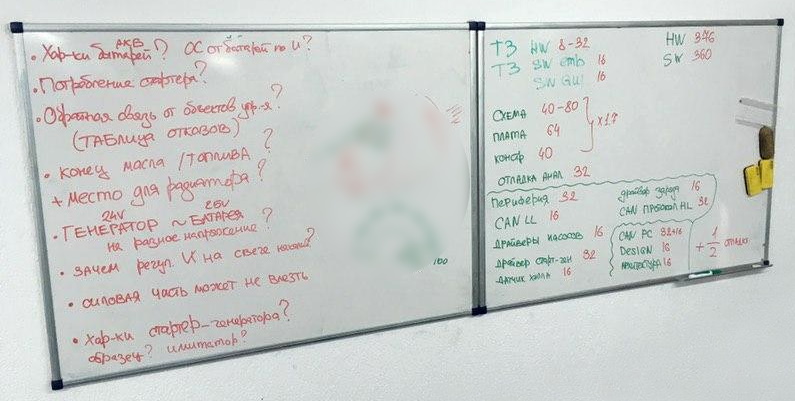 АКБ
• Хар-ки батарей? ОС от батарей по U?
• Потребление стартера?
• Обратная связь от объектов упр-я?
(ТАБЛИЦА ОТКАЗОВ)
• КОНЕЦ МАСЛА / ТОПЛИВА?
+ МЕСТО ДЛЯ радиатора?
24V 26V
• ГЕНЕРАТОР ~ БАТАРЕЯ
на разное напряжение?
• ЗАЧЕМ регул. U на свече
• СИЛОВАЯ ЧАСТЬ МОЖЕТ НЕ ВЛЕЗТЬ
• Хар-ки стартер-генератора?
образец? имитатор?
100
ТЗ HW 8-32
ТЗ SW emb 16
SW GUI 16
HW 376
SW 360
СХЕМА 40-80
ПЛАТА 64
КОНСТР 40
ОТЛАДКА АНАЛ 32
Периферия 32
CAN LL 16
ДРАЙВЕРЫ НАСОСОВ 16
ДРАЙВЕР СТАРТ-ГЕН 32
ДАТЧИК ХОЛЛА 16
драйвер заряда 16
CAN ПРОТОКОЛ HL 32
CAN PC 32+16
DESIGN 16
АРХИТЕКТУРА 16
+ 1/2 отладка